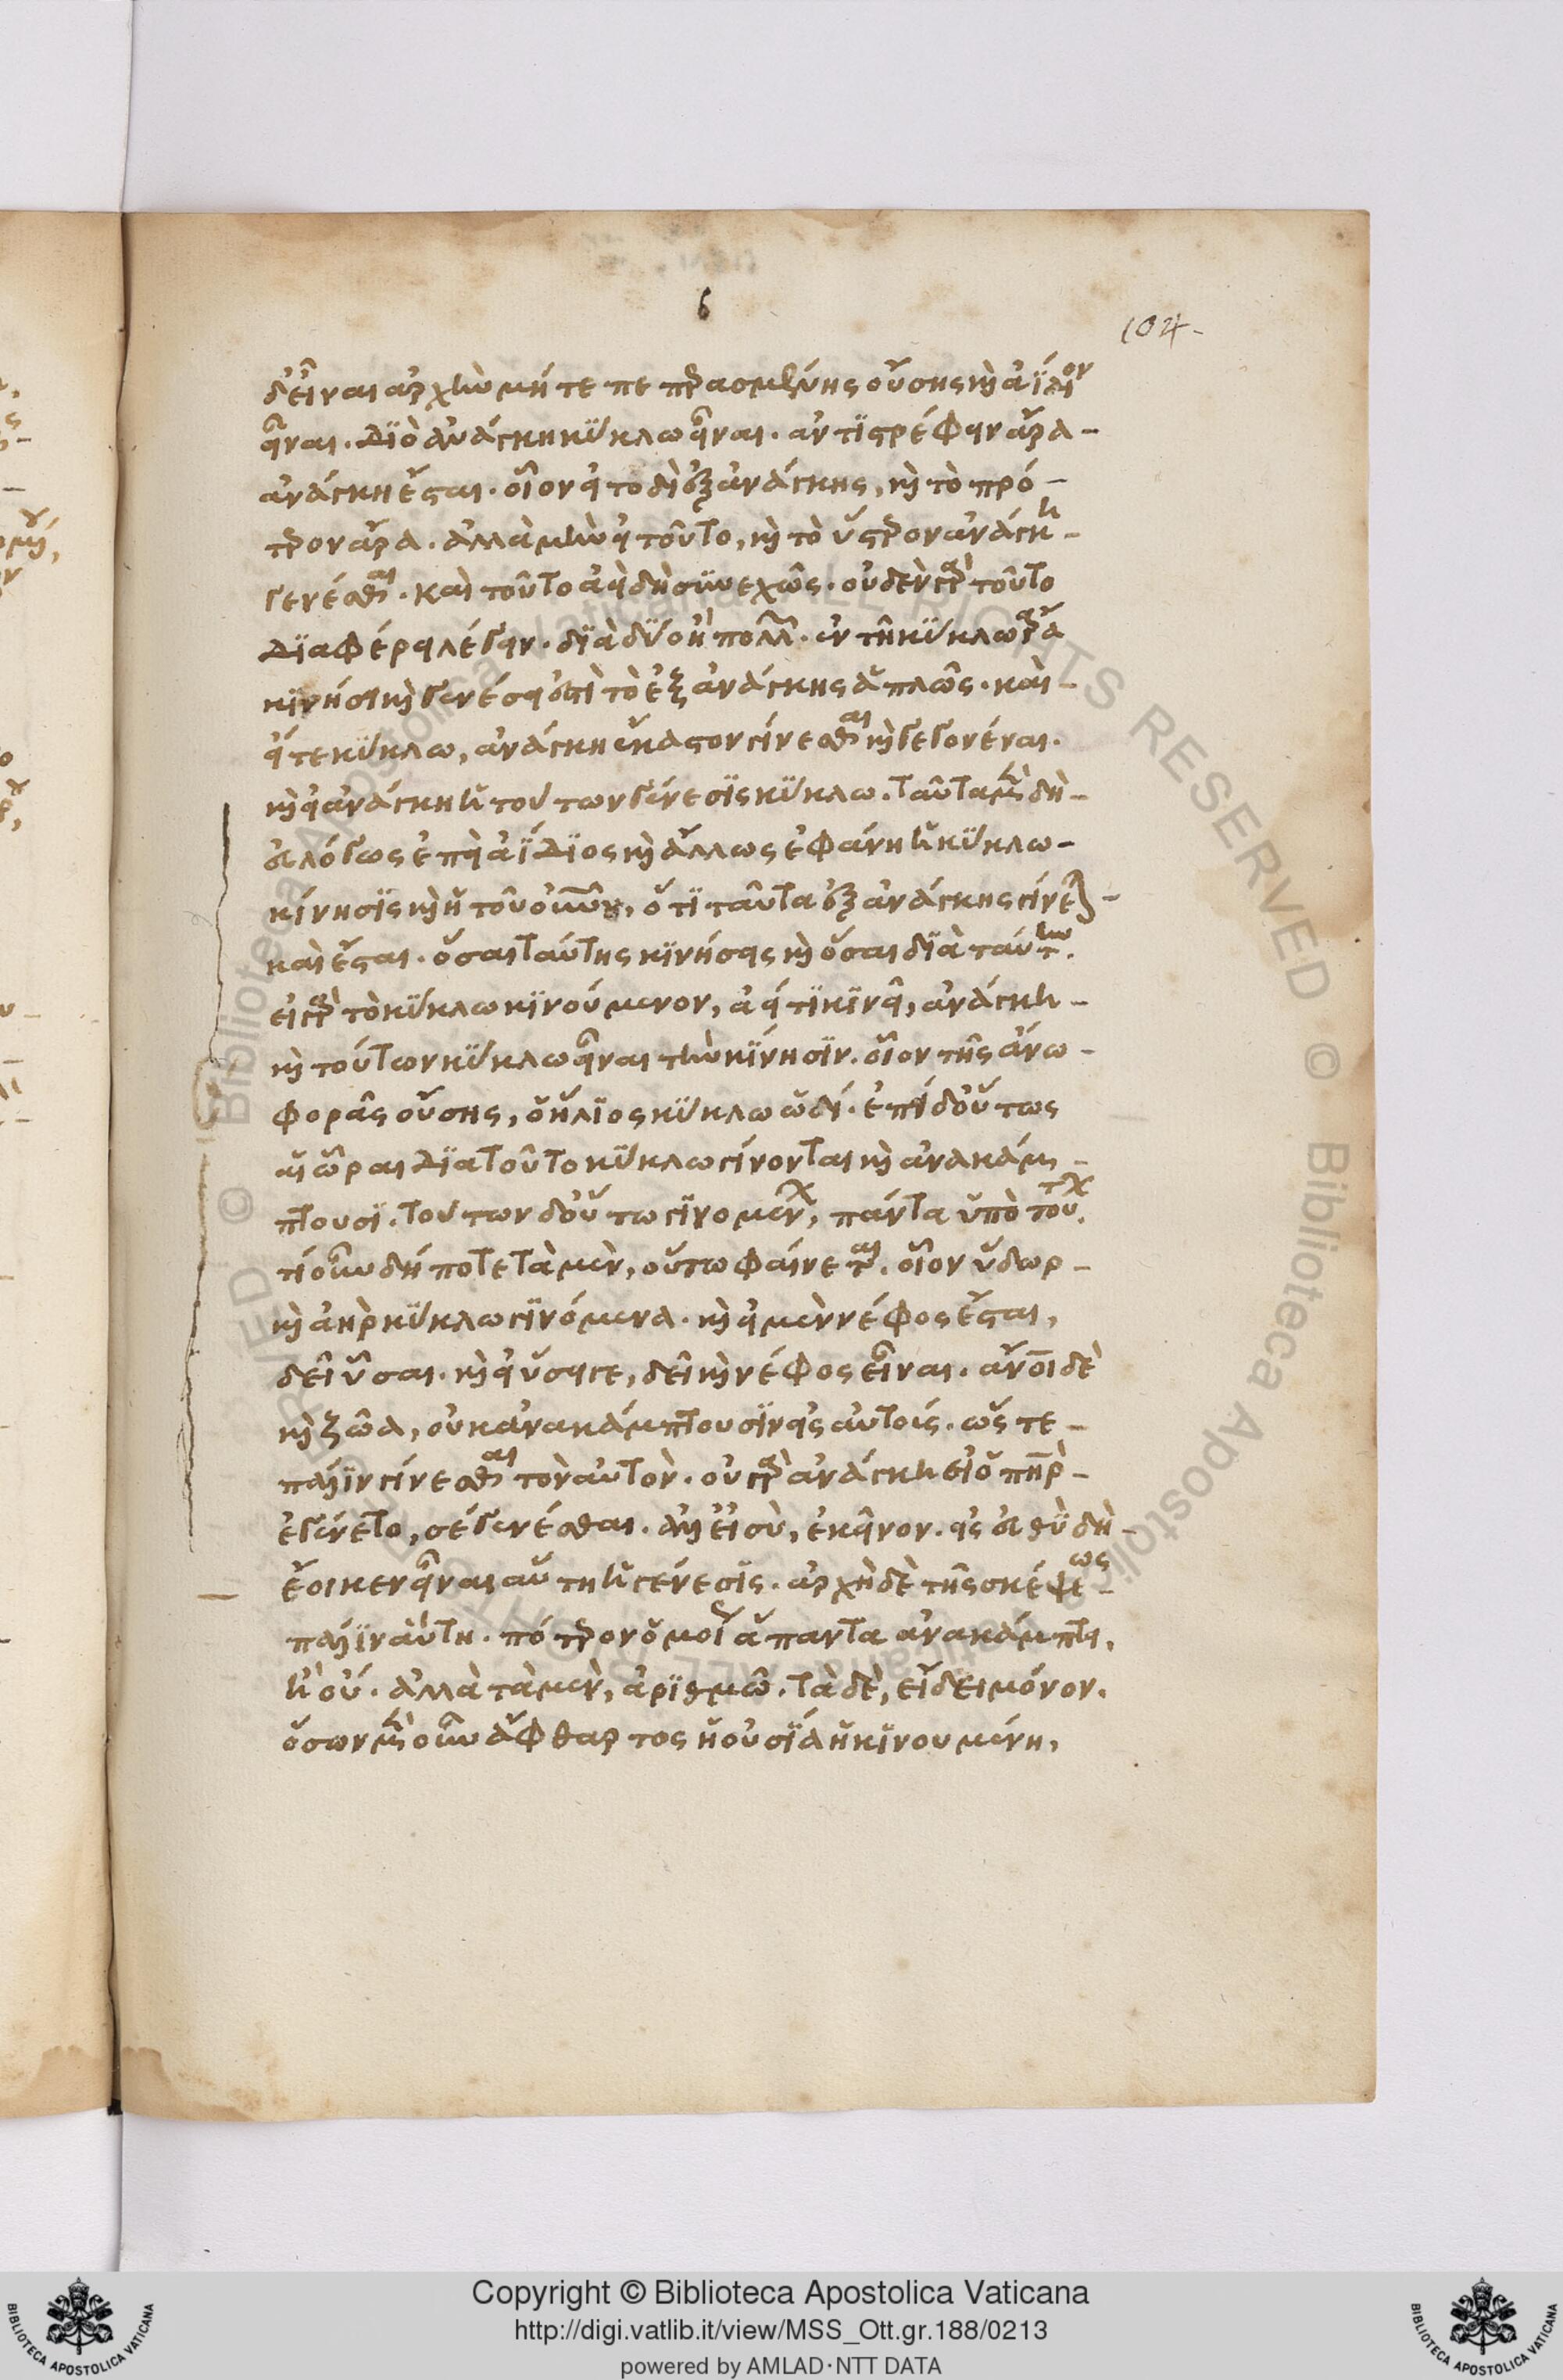 6
104
δ' εἶναι ἀρχὴν μήτε πεπερασμένης οὔσης καὶ ἀΐδιον
εἶναι. διὸ ἀνάγκη κύκλω εἶναι. ἀντιστρέφειν ἄρα
ἀνάγκη ἔσται. οἷον εἰ τοδὶ ἐξ ἀνάγκης, καὶ τὸ πρό-
τερον ἄρα. ἀλλὰ μὴν εἰ τοῦτο, καὶ τὸ ὕστερον ἀνάγκη
γενέσθαι. καὶ τοῦτο ἀεὶ δὴ συνεχῶς. οὐδὲν γὰρ τοῦτο
διαφέρει λέγειν. διὰ δύο ἢ πολλῶν. ἐν τῆ κύκλω ἄρα
κινήσει καὶ γενέσει ἐστὶ τὸ ἐξ ἀνάγκης ἁπλῶς. καὶ
εἴτε κύκλω, ἀνάγκη ἕκαστον γίνεσθαι καὶ γεγονέναι.
καὶ εἰ ἀνάγκη ἡ τούτων γένεσις κύκλω. ταῦτα μὲν δὴ
εὐλόγως ἐπεὶ ἀΐδιος καὶ ἄλλως ἐφάνη ἡ κύκλω
κίνησις καὶ ἡ τοῦ οὐρανοῦ, ὅτι ταῦτα ἐξ ἀνάγκης γίνεται
καὶ ἔσται. ὅσαι ταύτης κινήσεις καὶ ὅσαι διὰ ταύτην.
εἰ γὰρ τὸ κύκλω κινούμενον, ἀεί τι κινεῖ, ἀνάγκη
καὶ τούτων κύκλω εἶναι τὴν κίνησιν. οἷον τῆς ἄνω
φορᾶς οὔσης, ὁ ἥλιος κύκλω ὡδί. ἐπεὶ δ' οὕτως
αἱ ὧραι διατοῦτο κύκλω γίνονται καὶ ἀνακάμ-
πτουσι. τούτων δ' οὕτω γινομένων, πάντα ὑπὸ τούτων.
τί οὖν δήποτε τὰ μὲν, οὕτω φαίνεται. οἷον ὕδωρ
καὶ ἀὴρ κύκλω γινόμενα. καὶ εἰ μὲν νέφος ἔσται,
δεῖ ὗσαι. καὶ εἰ ὕσει γε, δεῖ καὶ νέφος εἶναι. ἄνοι δὲ
καὶ ζῶα, οὐκ ἀνακάμπτουσιν εἰς αὑτοὺς. ὥστε
πάλιν γίνεσθαι τὸν αὐτόν. οὐ γὰρ ἀνάγκη εἰ ὁ πὴρ
ἐγένετο, σὲ γενέσθαι. ἀλλ' εἰ σὺ, ἐκεῖνον. εἰς εὐθὺ δὴ
ἔοικεν εἶναι αὕτη ἡ γένεσις. ἀρχὴ δὲ τῆς σκέψεως
πάλιν αὕτη. πότερον ὁμοίως ἅπαντα ἀνακάμπτει.
ἢ οὔ. ἀλλὰ τὰ μὲν, ἀριθμῶ. τὰ δὲ, εἴδει μόνον.
ὅσων μὲν οὖν ἄφθαρτος ἡ οὐσία ἡ κινουμένη,
Copyright © Biblioteca Apostolica Vaticana
http://digi.vatlib.it/view/MSS_Ott.gr.188/0213
powered by AMLAD·NTT DATA